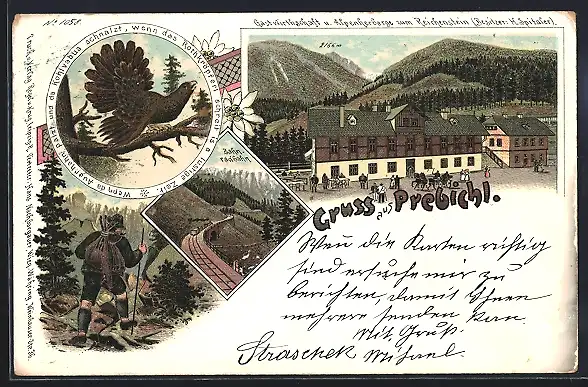 No 1058.
Gastwirthschaft u. Alpenherberge zum Reichenstein (Besitzer: H. Spitaler).
2166 m
Wann da Auerhahn palzt und da Kohlvabua schnalzt, wenn das Rothkröpferl schreit is a lustige Zeit.
Zahn-
radbahn
Gruss aus Prebichl.
Wen die Karten richtig
sind ersuche mir zu
berichten, damit Ihnen
mehrere senden kan.
Mit Gruß
Straschek Michael.